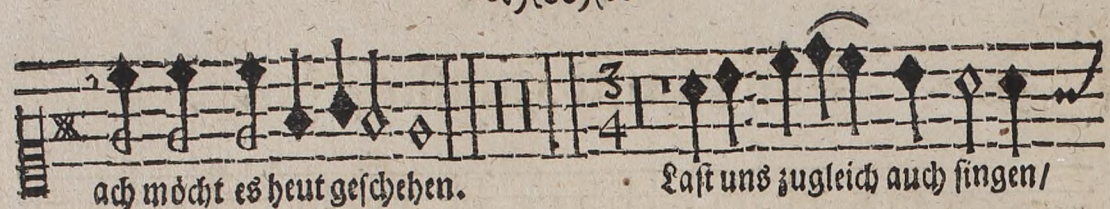 3
4
ach möcht es heut geschehen. Last uns zugleich auch singen/